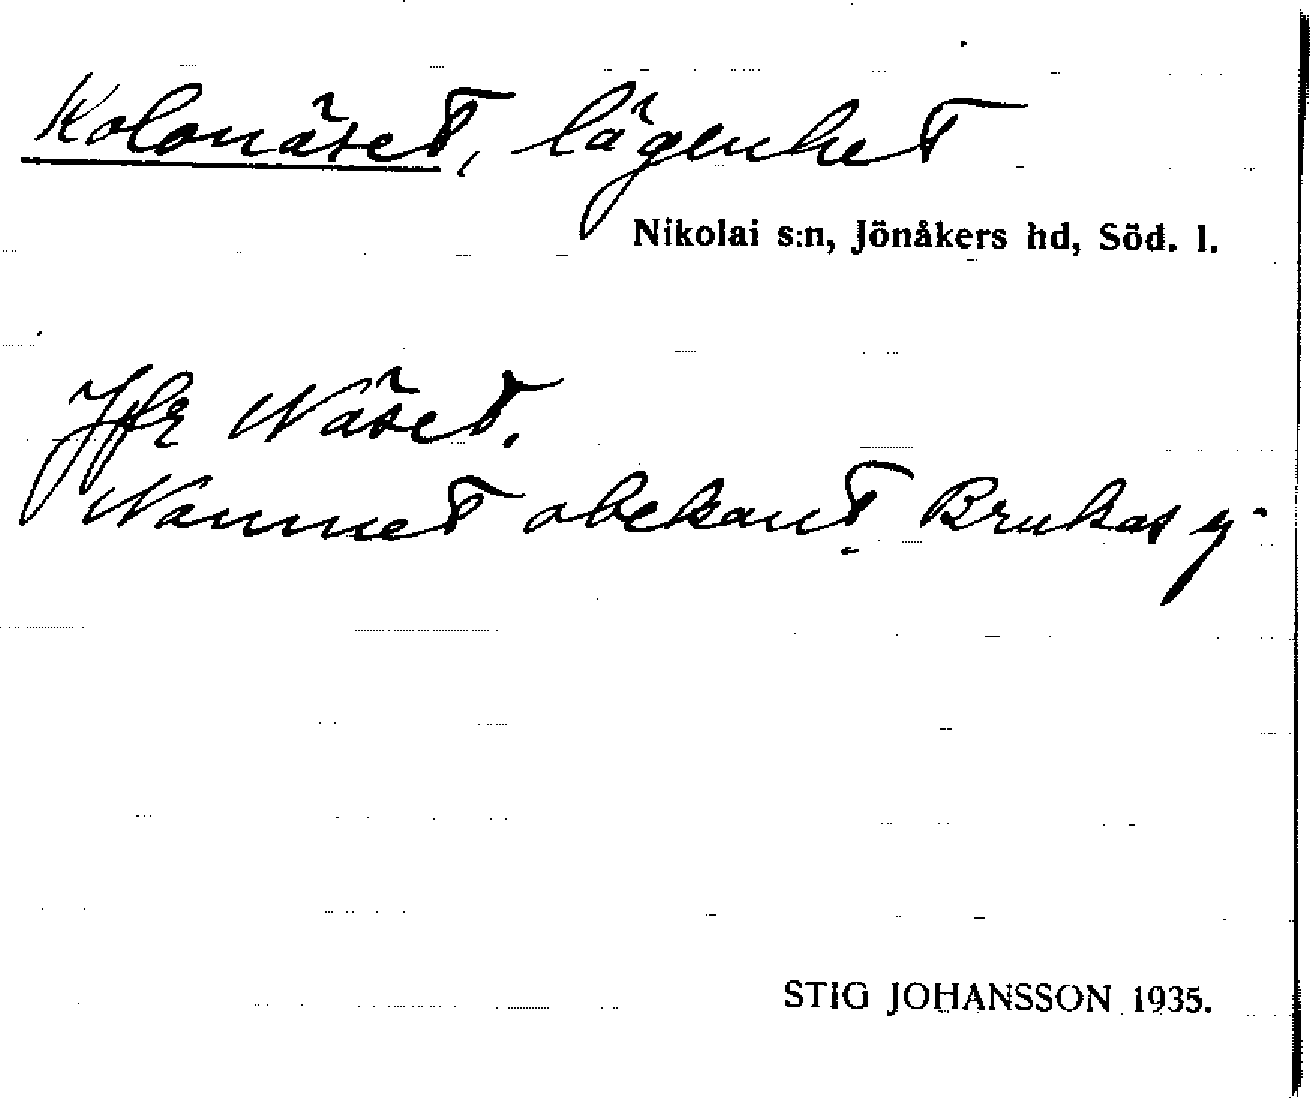 Kolonäset, lägenhet
Nikolai s:n, Jönåkers hd, Söd. l.
Jfr Näset.
Namnet obekant. Brukas ej
STIG JOHANSSON 1935.